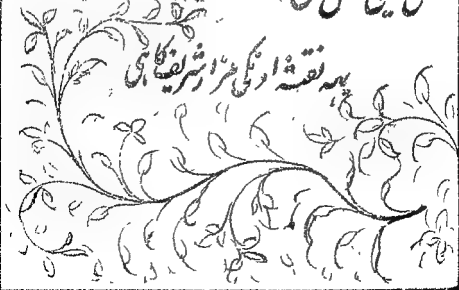 یہہ نقشہ اونکی مزار شریف کا ہی